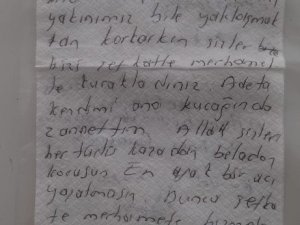 yakınımız bile yaklaşmak
tan korkarken sizler
bizi şefkatle merhamet
le kucakladınız Adeta
kendimi ana kucağında
zannettim. Allah sizleri
her türlü kazadan beladan
korusun En ufak bir acı
yaşatmasın. Bunca şefka
te merhamete